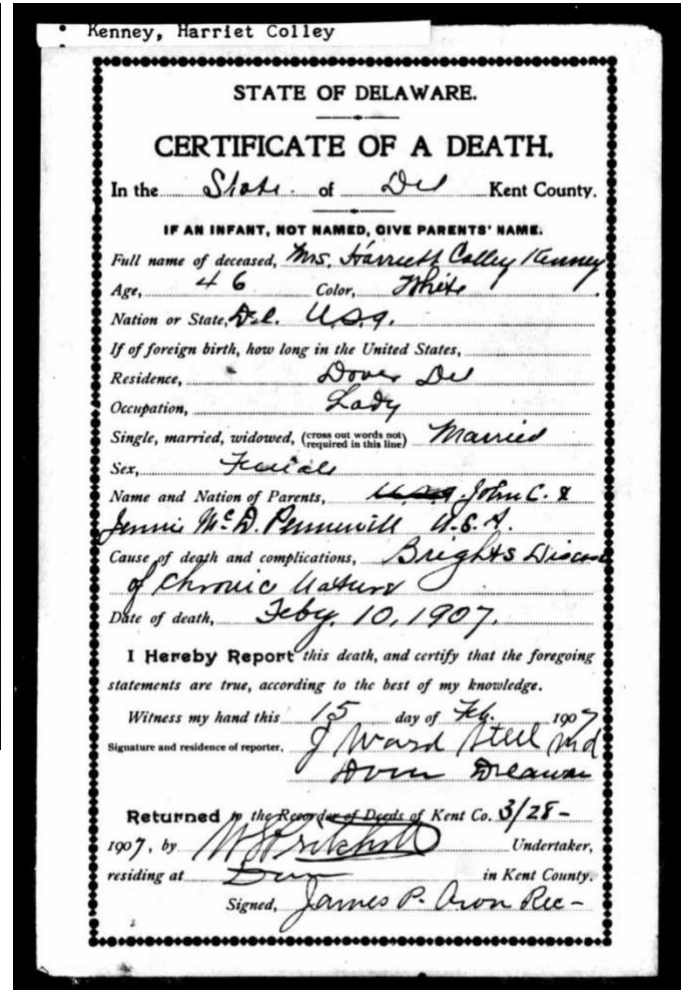 Kenney, Harriet Colley
STATE OF DELAWARE.
CERTIFICATE OF A DEATH.
In the State. of Del Kent County.
IF AN INFANT, NOT NAMED, GIVE PARENTS' NAME.
Full name of deceased, Mrs. Harriett Colley Kenney
Age, 46 Color, White
Nation or State, Del. U.S.A.
If of foreign birth, how long in the United States,
Residence, Dover Del
Occupation, Lady
Single, married, widowed, (cross out words not required in this line) Married
Sex, Female
Name and Nation of Parents, U.S.A. John C. &
Jennie McD. Pennewill U.S.A.
Cause of death and complications, Brights Disease
of Chronic Nature
Date of death, Feby, 10, 1907.
I Hereby Report this death, and certify that the foregoing
statements are true, according to the best of my knowledge.
Witness my hand this 15 day of Feb. 1907
Signature and residence of reporter, J Ward Steel Md
Dover Delaware
Returned to the Recorder of Deeds of Kent Co. 3/28-
1907, by Undertaker,
residing at Dover in Kent County.
Signed, James P. Rec-